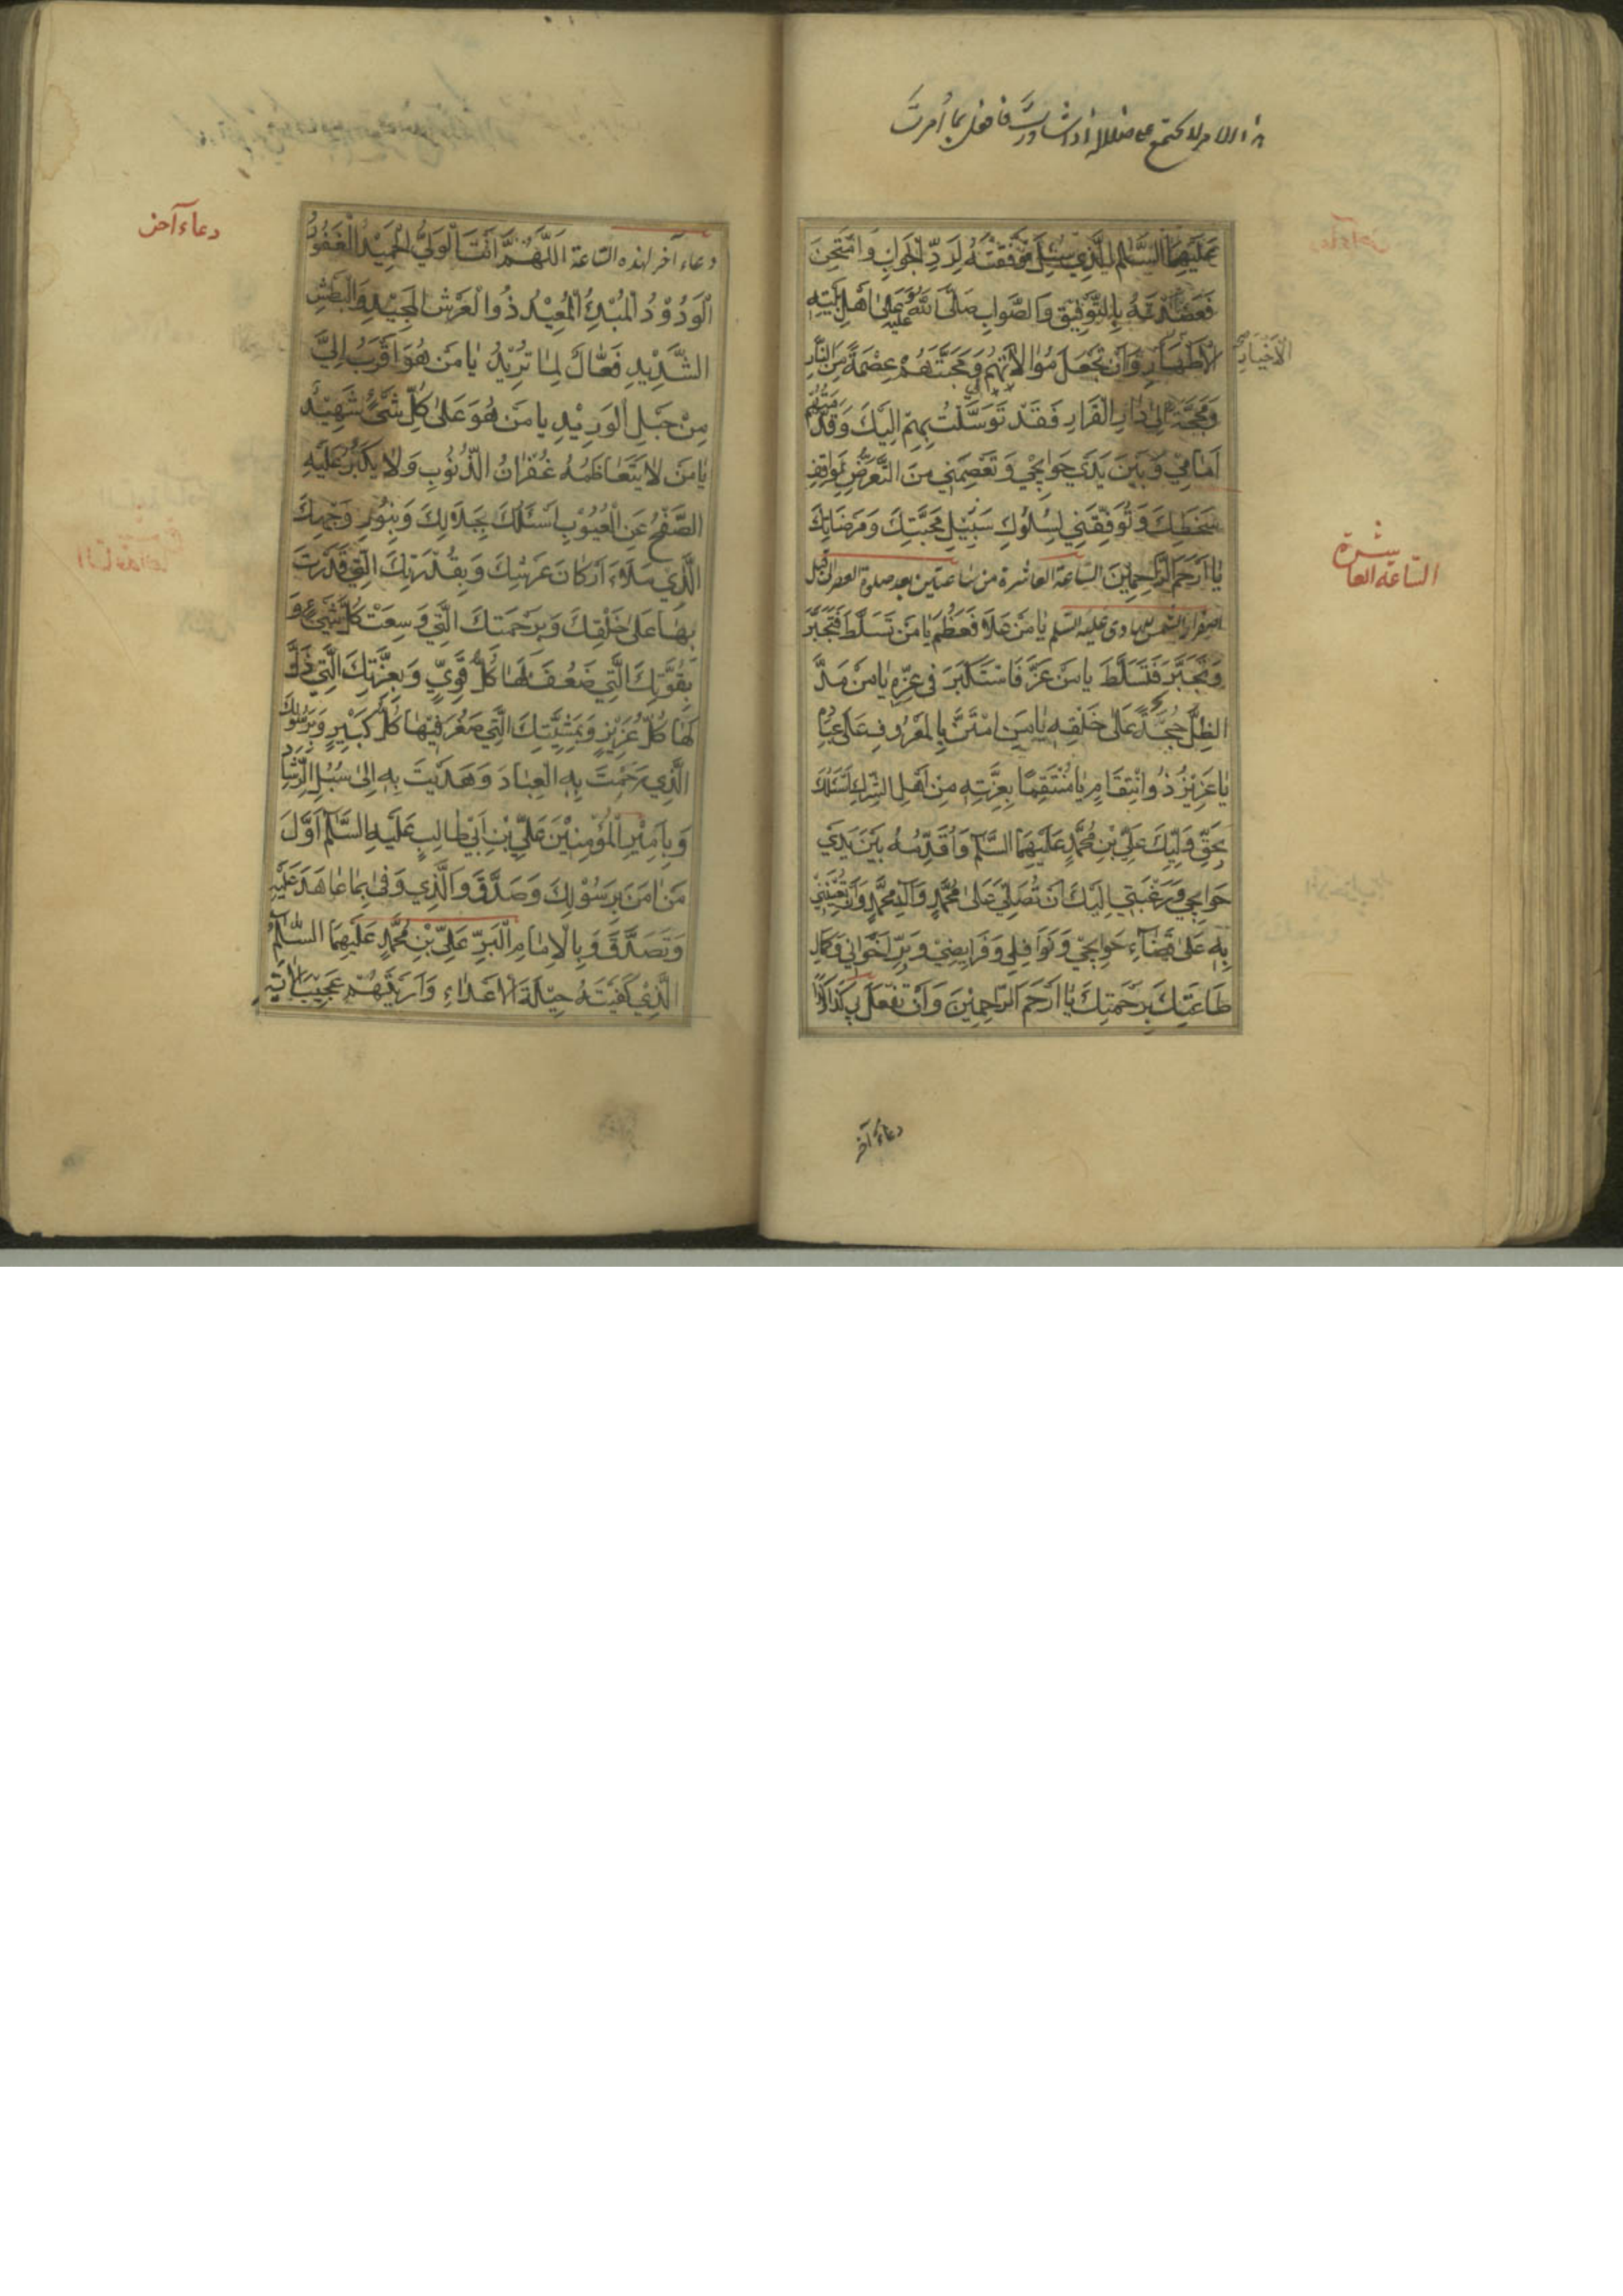 فافعل بما أمرتَ
عَلَيْهِمَا السَّلٰمُ الَّذِي سُئِلَ فَوَفَّقْتَهُ لِرَدِّ الْجَوَابِ وَامْتُحِنَ
فَعَضَدْتَهُ بِالتَّوْفِيقِ وَالصَّوَابِ صَلَّى اللهُ عَلَيْهِ وَعَلىٰ اَهْلِ بَيْتِهِ
الْاَطْهَارِ وَاَنْ تَجْعَلَ مُوَالاتَهُمْ وَمَحَبَّتَهُمْ عِصْمَةً مِنَ النَّارِ
الْاَخْيَارِ
وَمَحَجَّةً اِلىٰ دَارِ الْقَرَارِ فَقَدْ تَوَسَّلْتُ بِهِمْ اِلَيْكَ وَقَدَّمْتُهُمْ
اَمَامِي وَبَيْنَ يَدَي حَوَائِجِي وَتَعْصِمَنِي مِنَ التَّعَرُّضِ لِمَوَاقِفِ
سَخَطِكَ وَتُوَفِّقَنِي لِسُلُوكِ سَبِيلِ مَحَبَّتِكَ وَمَرْضَاتِكَ
يٰا اَرْحَمَ الرَّاحِمِينَ السّاعة العاشرة من ساعتين بعد صلوة العصر الى قبل
السّاعة العاشرة
اصفرار الشمس للهادى عليه السّلم يٰا مَنْ عَلَا فَعَظُمَ يٰا مَنْ تَسَلَّطَ فَتَجَبَّرَ
وَتَجَبَّرَ فَتَسَلَّطَ يا مَنْ عَزَّ فَاسْتَكْبَرَ فِي عِزِّهِ يٰا مَنْ مَدَّ
الظِّلَّ عَلىٰ خَلْقِهِ يٰا مَنِ امْتَنَّ بِالْمَعْرُوفِ عَلىٰ عِبٰادِهِ
يٰا عَزِيزُ ذُو انْتِقٰامٍ يٰا مُنْتَقِمًا بِعِزَّتِهِ مِنْ اَهْلِ الشِّرْكِ اَسْئَلُكَ
بِحَقِّ وَلِيِّكَ عَلِيِّ بْنِ مُحَمَّدٍ عَلَيْهِمَا السَّلٰمُ وَاُقَدِّمُهُ بَيْنَ يَدَيْ
حَوَائِجِي وَرَغْبَتِي اِلَيْكَ اَنْ تُصَلِّيَ عَلىٰ مُحَمَّدٍ وَآلِ مُحَمَّدٍ وَاَنْ تُعِينَنِي
بِهِ عَلىٰ قَضٰاءِ حَوَائِجِي وَنَوَافِلِي وَفَرَايِضِي وَبِرِّ اِخْوَانِي وَكَمَالِ
طَاعَتِكَ بِرَحْمَتِكَ يٰا اَرْحَمَ الرَّاحِمِينَ وَاَنْ تَفْعَلَ بِي كَذَا وَكَذَا
دعاءٌ آخر
دعاء آخر
دعاء آخر لهذه السّاعة اَللّٰهُمَّ اَنْتَ الْوَلِيُّ الْحَمِيدُ الْغَفُورُ
الْوَدُودُ الْمُبْدِئُ الْمُعِيدُ ذُو الْعَرْشِ الْمَجِيدِ وَالْبَطْشِ
الشَّدِيدِ فَعَّالٌ لِمَا تُرِيدُ يٰا مَنْ هُوَ اَقْرَبُ اِلَيَّ
مِنْ حَبْلِ الْوَرِيدِ يا مَنْ هُوَ عَلىٰ كُلِّ شَيْءٍ شَهِيدٌ
يٰا مَنْ لَا يَتَعَاظَمُهُ غُفْرَانُ الذُّنُوبِ وَلَا يَكْبُرُ عَلَيْهِ
الصَّفْحُ عَنِ الْعُيُوبِ اَسْئَلُكَ بِجَلَالِكَ وَبِنُورِ وَجْهِكَ
الَّذِي مَلَاءَ اَرْكَانَ عَرْشِكَ وَبِقُدْرَتِكَ الَّتِي قَدَرْتَ
بِهَا عَلىٰ خَلْقِكَ وَبِرَحْمَتِكَ الَّتِي وَسِعَتْ كُلَّ شَيْءٍ وَ
بِقُوَّتِكَ الَّتِي ضَعُفَ لَهَا كُلُّ قَوِيٍّ وَبِعِزَّتِكَ الَّتِي ذَلَّ
لَهَا كُلُّ عَزِيزٍ وَبِمَشِيَّتِكَ الَّتِي صَغُرَ فِيهَا كُلُّ كَبِيرٍ وَبِرَسُولِكَ
الَّذِي رَحِمْتَ بِهِ الْعِبَادَ وَهَدَيْتَ بِهِ اِلىٰ سُبُلِ الرَّشَادِ
وَبِاَمِيرِ الْمُؤْمِنِينَ عَلِيِّ بْنِ اَبِي طَالِبٍ عَلَيْهِ السَّلٰمُ اَوَّلَ
مَنْ اٰمَنَ بِرَسُولِكَ وَصَدَّقَ وَالَّذِي وَفىٰ بِمَا عَاهَدَ عَلَيْهِ
وَتَصَدَّقَ وَبِالْاِمَامِ الْبَرِّ عَلِيِّ بْنِ مُحَمَّدٍ عَلَيْهِمَا السَّلٰمُ
الَّذِي كَفَيْتَهُ حِيلَةَ الْاَعْدَاءِ وَاَرَيْتَهُمْ عَجِيبَ الْاٰيَةِ